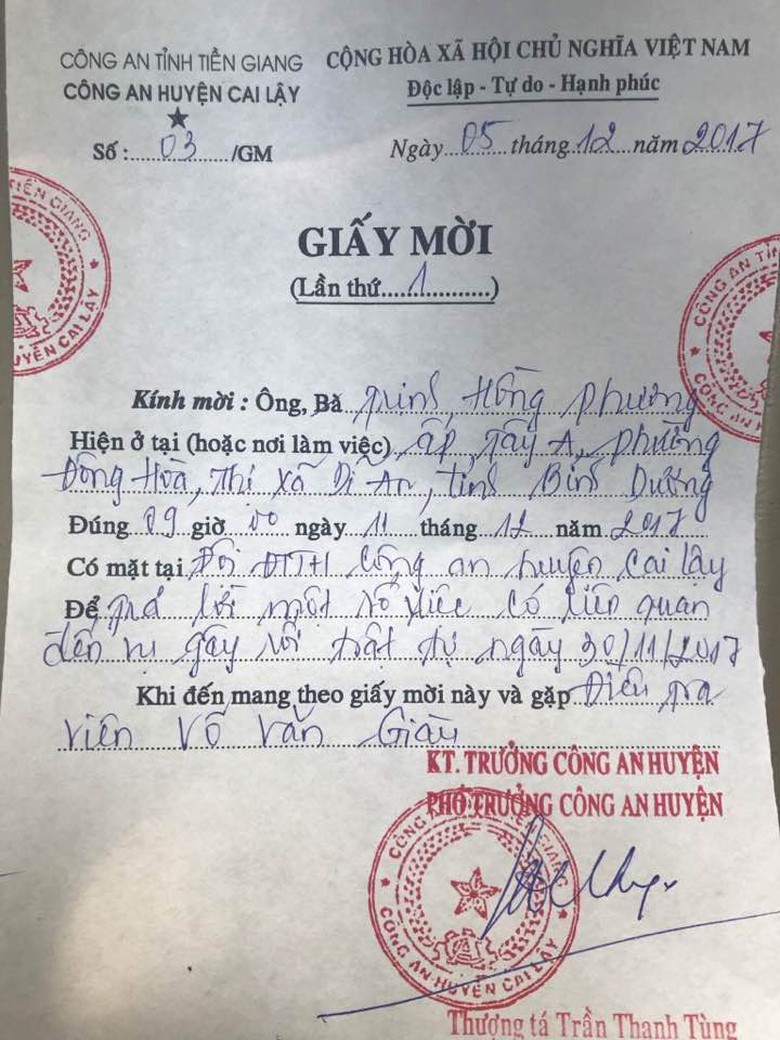 CÔNG AN TỈNH TIỀN GIANG
CÔNG AN HUYỆN CAI LẬY
CỘNG HÒA XÃ HỘI CHỦ NGHĨA VIỆT NAM
Độc lập - Tự do - Hạnh phúc
Số : 03 /GM
Ngày 05 tháng 12 năm 2017
GIẤY MỜI
(Lần thứ 1)
Kính mời : Ông, Bà Trịnh Hồng Phương
Hiện ở tại (hoặc nơi làm việc) ấp Tây A, phường
Đông Hòa, Thị xã Dĩ An, tỉnh Bình Dương
Đúng 09 giờ 00 ngày 11 tháng 12 năm 2017
Có mặt tại Đội ĐTTH Công an huyện Cai Lậy
Để trả lời một số việc có liên quan
đến vụ gây rối trật tự ngày 30/11/2017
Khi đến mang theo giấy mời này và gặp Điều tra
viên Võ Văn Giàu
KT. TRƯỞNG CÔNG AN HUYỆN
PHÓ TRƯỞNG CÔNG AN HUYỆN
CÔNG AN TỈNH TIỀN GIANG
CÔNG AN HUYỆN CAI LẬY
Thượng tá Trần Thanh Tùng